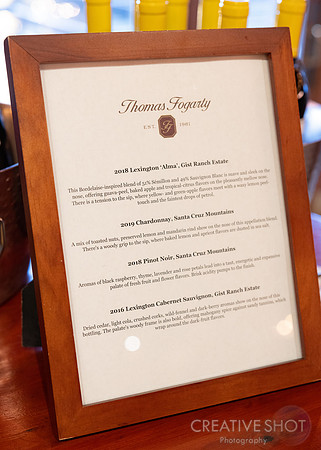 Thomas Fogarty
EST. 1981
2018 Lexington 'Alma', Gist Ranch Estate
This Bordelaise-inspired blend of 51% Semillon and 49% Sauvignon Blanc is suave and sleek on the
nose, offering guava-peel, baked apple and tropical-citrus flavors on the pleasantly mellow nose.
There is a tension to the sip, where yellow- and green-apple flavors meet with a waxy lemon peel
touch and the faintest drops of petrol.
2019 Chardonnay, Santa Cruz Mountains
A mix of toasted nuts, preserved lemon and mandarin rind show on the nose of this appellation blend.
There's a woody grip to the sip, where baked lemon and apricot flavors are dusted in sea salt.
2018 Pinot Noir, Santa Cruz Mountains
Aromas of black raspberry, thyme, lavender and rose petals lead into a taut, energetic and expansive
palate of fresh fruit and flower flavors. Brisk acidity pumps to the finish.
2016 Lexington Cabernet Sauvignon, Gist Ranch Estate
Dried cedar, light cola, crushed corks, wild-fennel and dark-berry aromas show on the nose of this
bottling. The palate's woody frame is also bold, offering mahogany spice against sandy tannins, which
wrap around the dark-fruit flavors.
CREATIVE SHOT
Photography